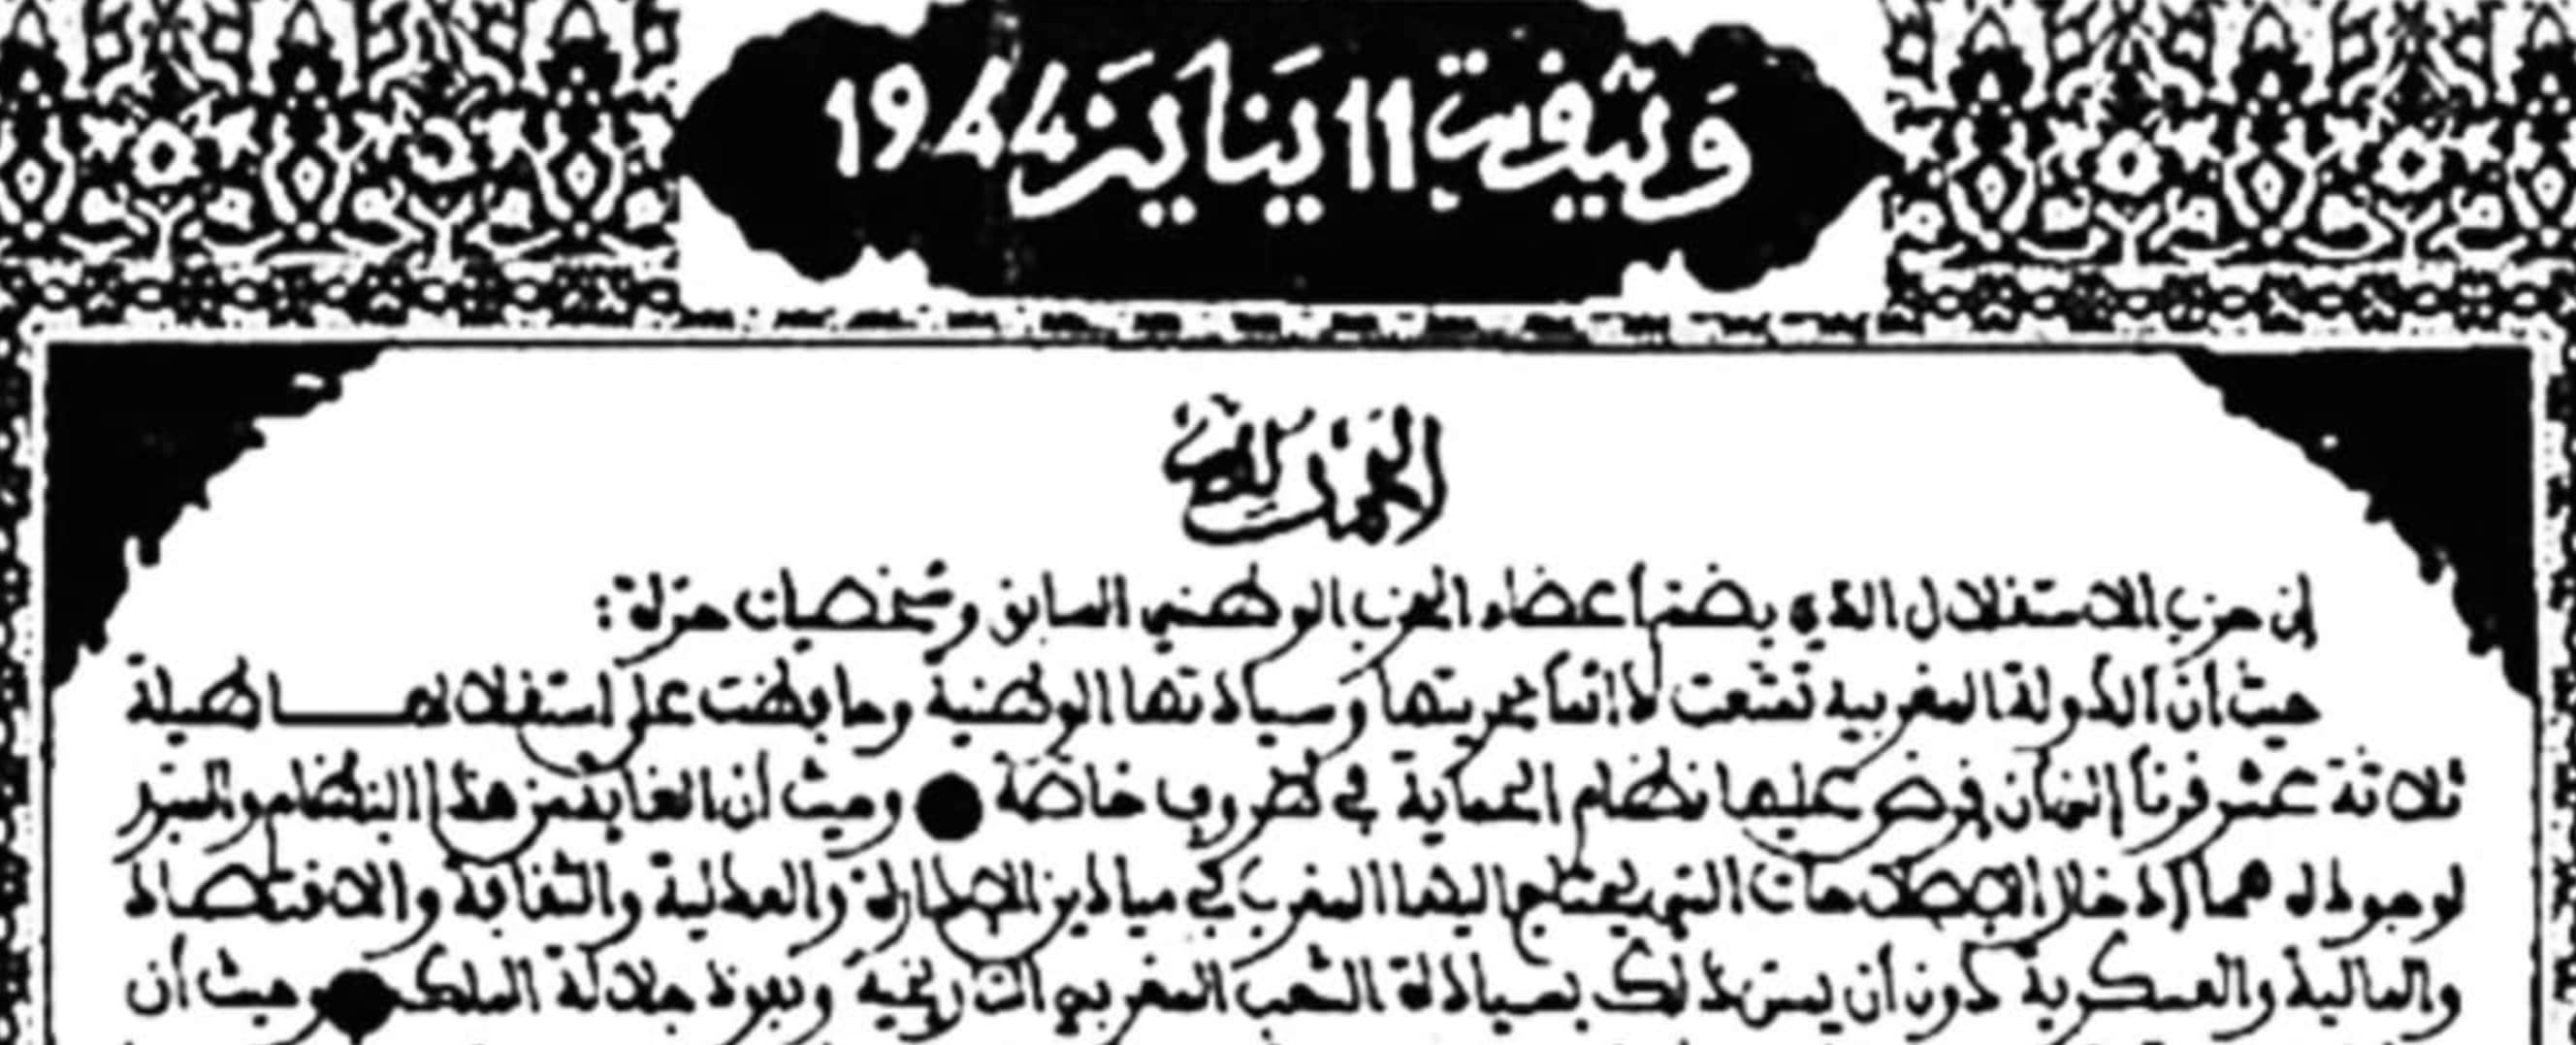 وَثيقة 11 يَنَايَر 1944
الحمد لله
إن حزب الاستقلال الذي يضم أعضاء الحزب الوطني السابق وشخصيات حرة :
حيث أن الدولة المغربية تمتعت دائما بحريتها وسيادتها الوطنية وحافظت على استقلالها طيلة
ثلاثة عشر قرنا إلى أن فرض عليها نظام الحماية في ظروف خاصة ● وحيث أن الغاية من هذا النظام والمبرر
لوجوده هما إدخال الإصلاحات التي يحتاج إليها المغرب في ميادين الإدارة والعدلية والثقافة والاقتصاد
والمالية والعسكرية دون أن يمس ذلك بسيادة الشعب المغربي التاريخية ونفوذ جلالة الملك ● وحيث أن